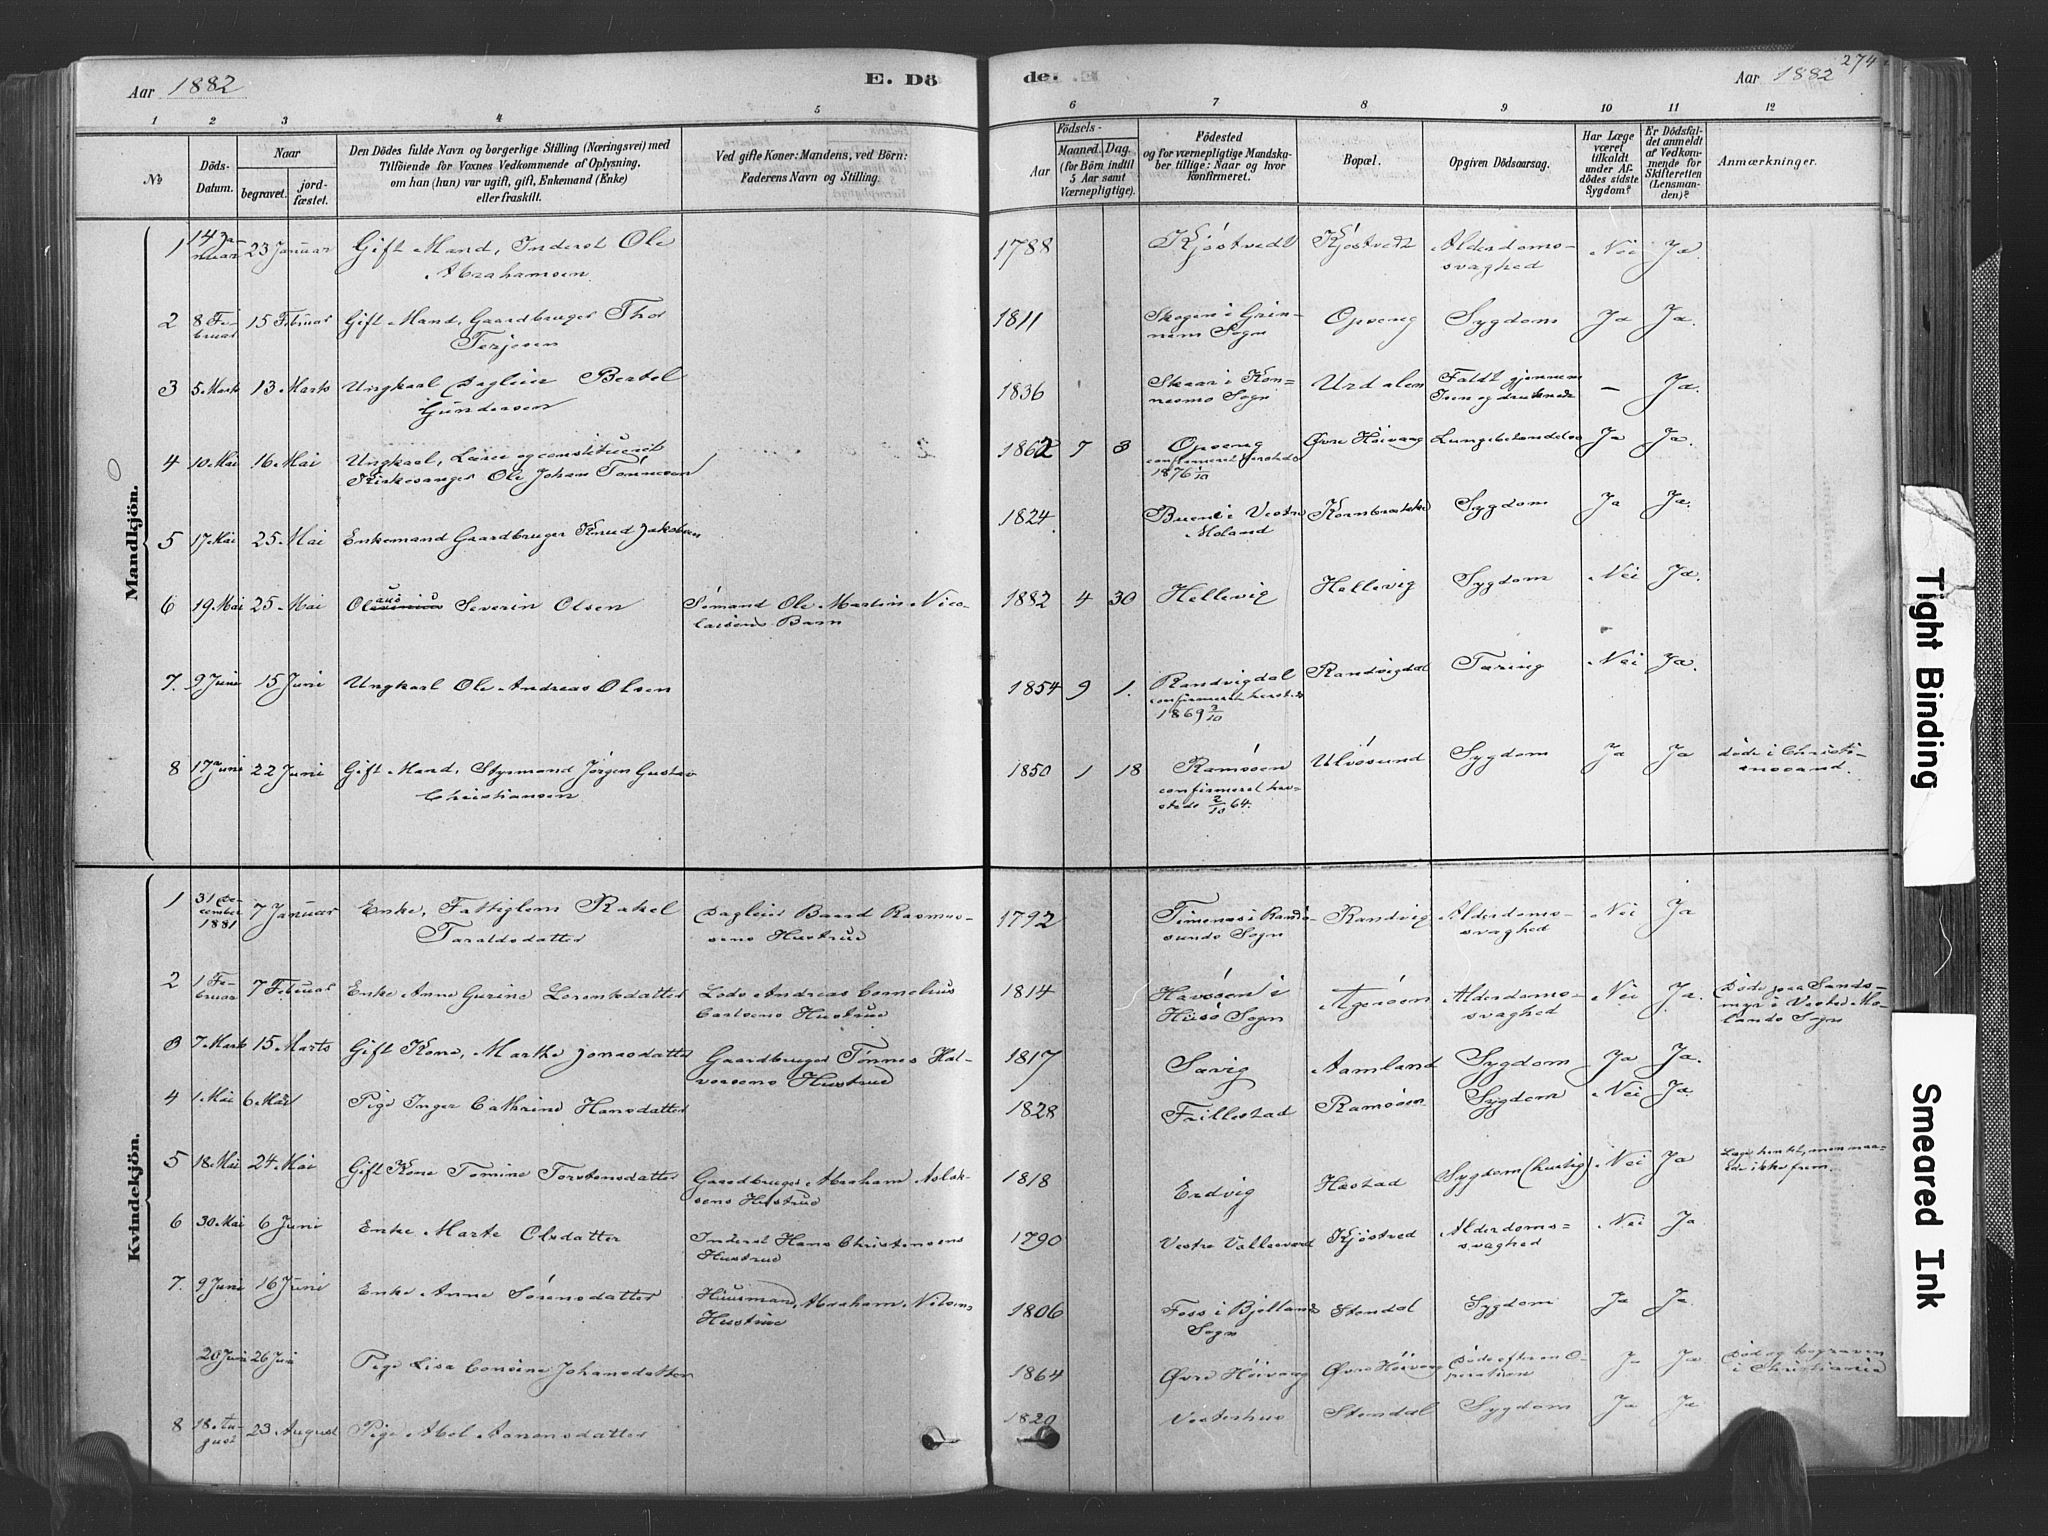 Aar 1882
E. Dö
de.
Aar 1882
274
1 2 3 4 5 6 7 8 9 10 11 12
No
Döds-
Datum.
Naar
begravet.
jord-
fæstet.
Den Dödes fulde Navn og borgerlige Stilling (Næringsvei) med
Tilföiende for Voxnes Vedkommende af Oplysning,
om han (hun) var ugift, gift, Enkemand (Enke)
eller fraskilt.
Ved gifte Koner: Mandens, ved Börn:
Faderens Navn og Stilling.
Födsels-
Aar
Maaned. Dag.
(for Börn indtil
5 Aar samt
Værnepligtige).
Födested
og for værnepligtige Mandska-
ber tillige: Naar og hvor
konfirmeret.
Bopæl.
Opgiven Dödsaarsag.
Har Læge
været
tilkaldt
under Af-
dödes sidste
Sygdom?
Er Dödsfal-
det anmeldt
af Vedkom-
mende for
Skifteretten
(Lensman-
den)?
Anmærkninger.
Mandkjön.
1 14 Ja-
nuar 23 Januar Gift Mand, Inderst Ole
Abrahamsen 1788 Kjöstvedt Kjöstvedt Alderdoms-
svaghed Nei Ja.
2 8 Fe-
bruar 15 Februar Gift Mand, Gaardbruger Thor
Terjesen 1811 Skogen i Grin-
nem Sogn Opveng Sygdom Ja Ja.
3 5 Marts 13 Marts Ungkarl Dagleier Bertel
Gundersen 1836 Skaar i Kon-
nesmo Sogn Urdalen Faldt gjennem
Isen og druknede — Ja.
4 10 Mai 16 Mai Ungkarl, Lærer og constitueret
Kirkesanger Ole Johan Tønnesen 1862 7 3 Opveng
confirmeret hersteds
1876 1/10 Øvre Høivaag Lungebetændelse Ja Ja.
5 17 Mai 25 Mai Enkemand Gaardbruger Knud Jakobsen 1824. Buene i Vestre
Moland Kornbrække Sygdom Ja Ja.
6 19 Mai 25 Mai Olaus Severin Olsen Sømand Ole Martin Nico-
laisens Barn 1882 4 30 Hellevig Hellevig Sygdom Nei Ja.
7. 9 Juni 15 Juni Ungkarl Ole Andreas Olsen 1854 9 1. Randvigdal
confirmeret herstede
1869 3/10 Randvigdal Tæring Nei Ja.
8 17 Juni 22 Juni Gift Mand, Styrmand Jörgen Gustav
Christiansen 1850 1 18 Ramsøen
confirmeret her-
stede 2/10 64. Ulvøsund Sygdom Ja Ja døde i Christi-
ansand.
Kvindekjön.
1 31 De-
cember
1881 7 Januar Enke, Fattiglem Rakel
Taraldsdatter Dagleier Baard Rasmus-
sens Hustrue 1792 Timenes i Rand-
sunds Sogn Randvig Alderdoms-
svaghed Nei Ja
2 1 Fe-
bruar 7 Februar Enke Anne Gurine Lorentsdatter Lods Andreas Cornelius
Carlsens Hustrue 1814 Havsøen i
Høisø Sogn Agerøen Alderdoms-
svaghed Nei Ja. Døde paa Sands-
myr i Vestre Mo-
lands Sogn
3 7 Marts 15 Marts Gift Kone, Marthe Jonasdatter Gaardbruger Tønnes Hal-
vorsens Hustrue 1817 Sævig Aamland Sygdom Ja Ja.
4 1 Mai 6 Mai Pige Inger Cathrine Hansdatter 1828 Frillestad Ramsøen Sygdom Nei Ja.
5 18 Mai 24 Mai Gift Kone Tomine Torstensdatter Gaardbruger Abraham Aslak-
sens Hustrue 1818 Erdvig Hæstad Sygdom (hurtig) Nei Ja Læge hentet, men naa-
ede ikke frem.
6 30 Mai 6 Juni Enke Marte Olsdatter Inderst Hans Christensens
Hustrue 1790 Vestre Vallesværd Kjøstved Alderdoms-
svaghed Nei Ja
7. 9 Juni 16 Juni Enke Anne Sørensdatter Huusmand Abraham Nilsens
Hustrue 1806 Foss i Bjellands
Sogn Stendal Sygdom Ja Ja.
20 Juni 26 Juni Pige Lisa Consine Johansdatter 1864 Øvre Høivaag Øvre Høivaag Døde efter en O-
peration Ja Ja Død og begraven
i Christiania
8 18 Au-
gust 23 August Pige Abel Aanensdatter 1820 Vesterhus Stendal Sygdom Ja Ja
Tight Binding
Smeared Ink